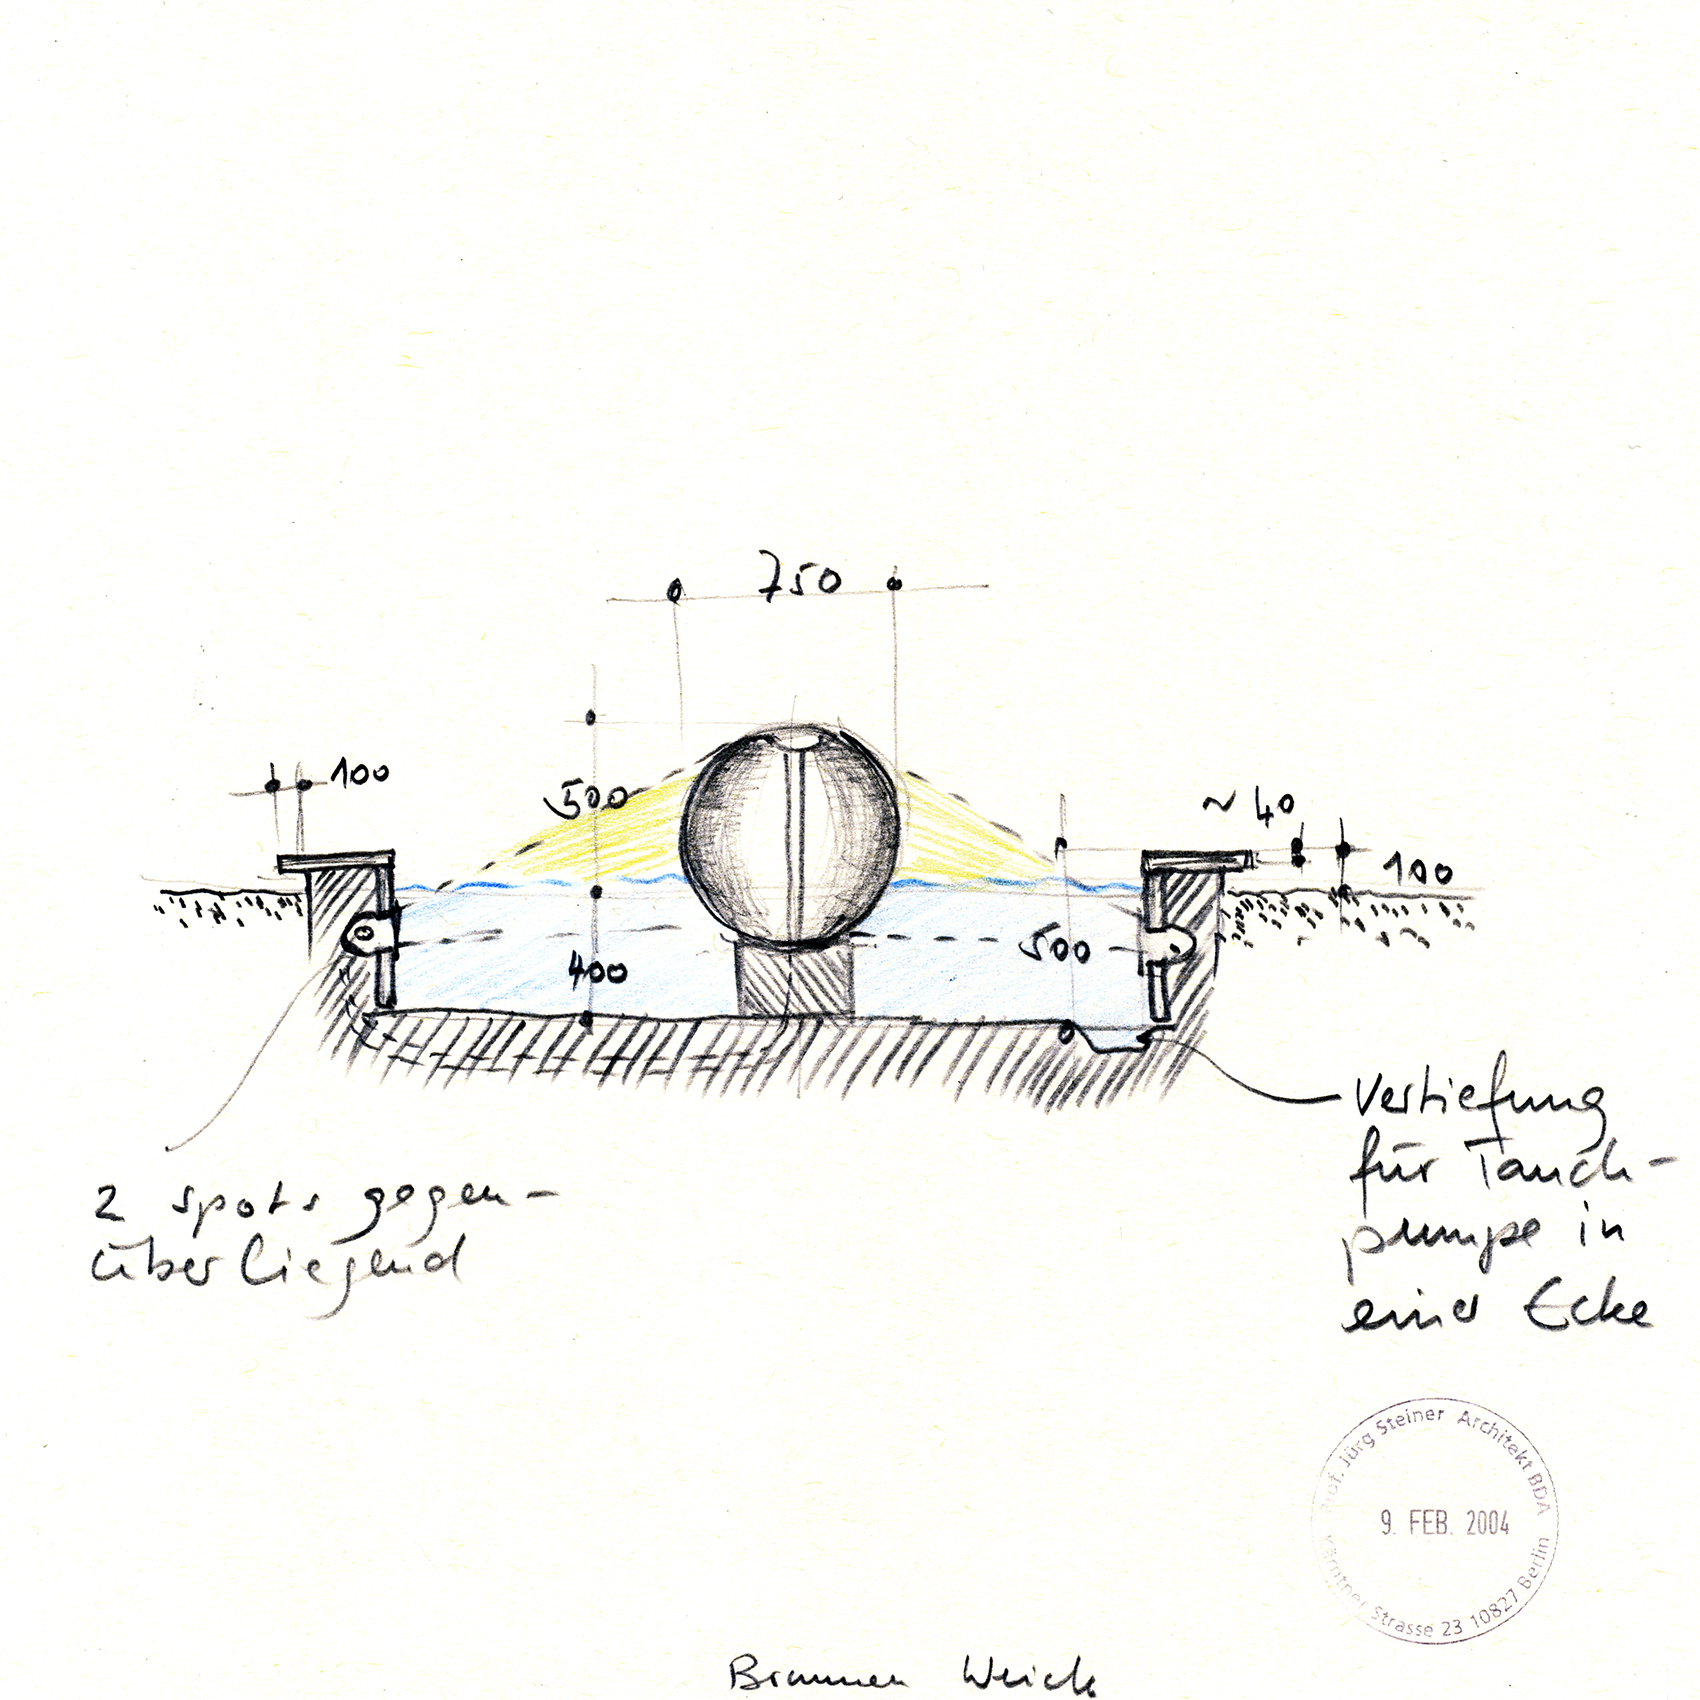 750
100
500
~ 40
100
400
500
2 spots gegen-
überliegend
Vertiefung
für Tauch-
pumpe in
einer Ecke
Prof. Jürg Steiner Architekt BDA
9. FEB. 2004
Kärntner Strasse 23 10827 Berlin
Brunnen Weick